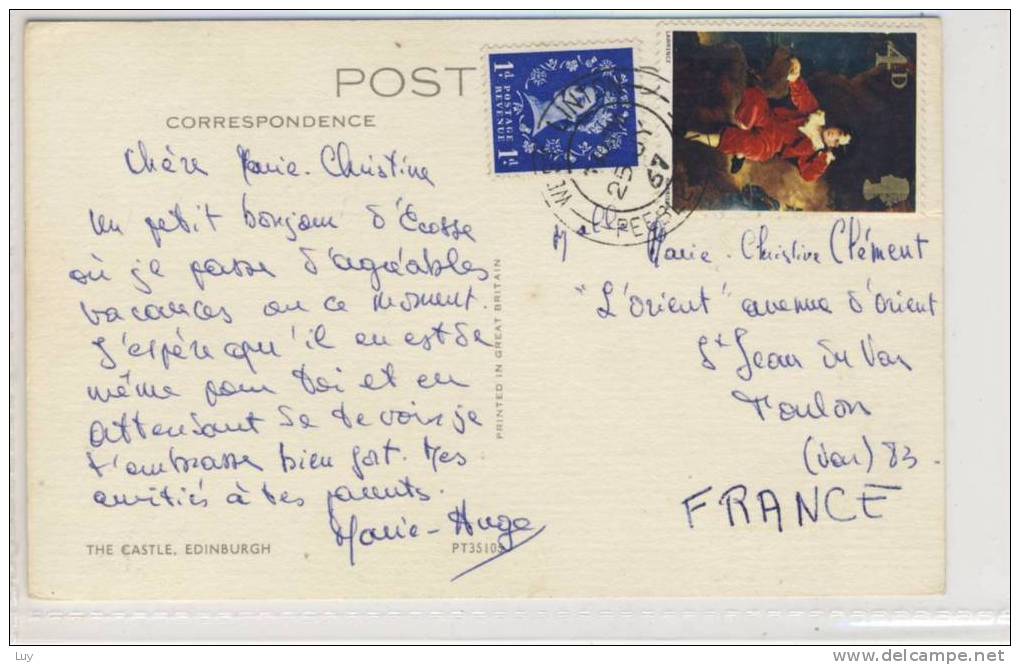 POST
CORRESPONDENCE
Chère Marie-Christine
Un petit bonjour d'Ecosse
où je passe d'agréables
vacances en ce moment.
J'espère qu'il en est de
même pour toi et en
attendant de te voir je
t'embrasse bien fort. Mes
amitiés à tes parents.
Marie-Ange
THE CASTLE, EDINBURGH
PT35105
PRINTED IN GREAT BRITAIN
1D. POSTAGE REVENUE 1D.
25
67
PEEBLES
LAWRENCE
4D
Melle Marie-Christine Clément
"L'Orient" avenue d'Orient
St Jean du Var
Toulon
(Var) 83.
FRANCE
Luy
www.delcampe.net